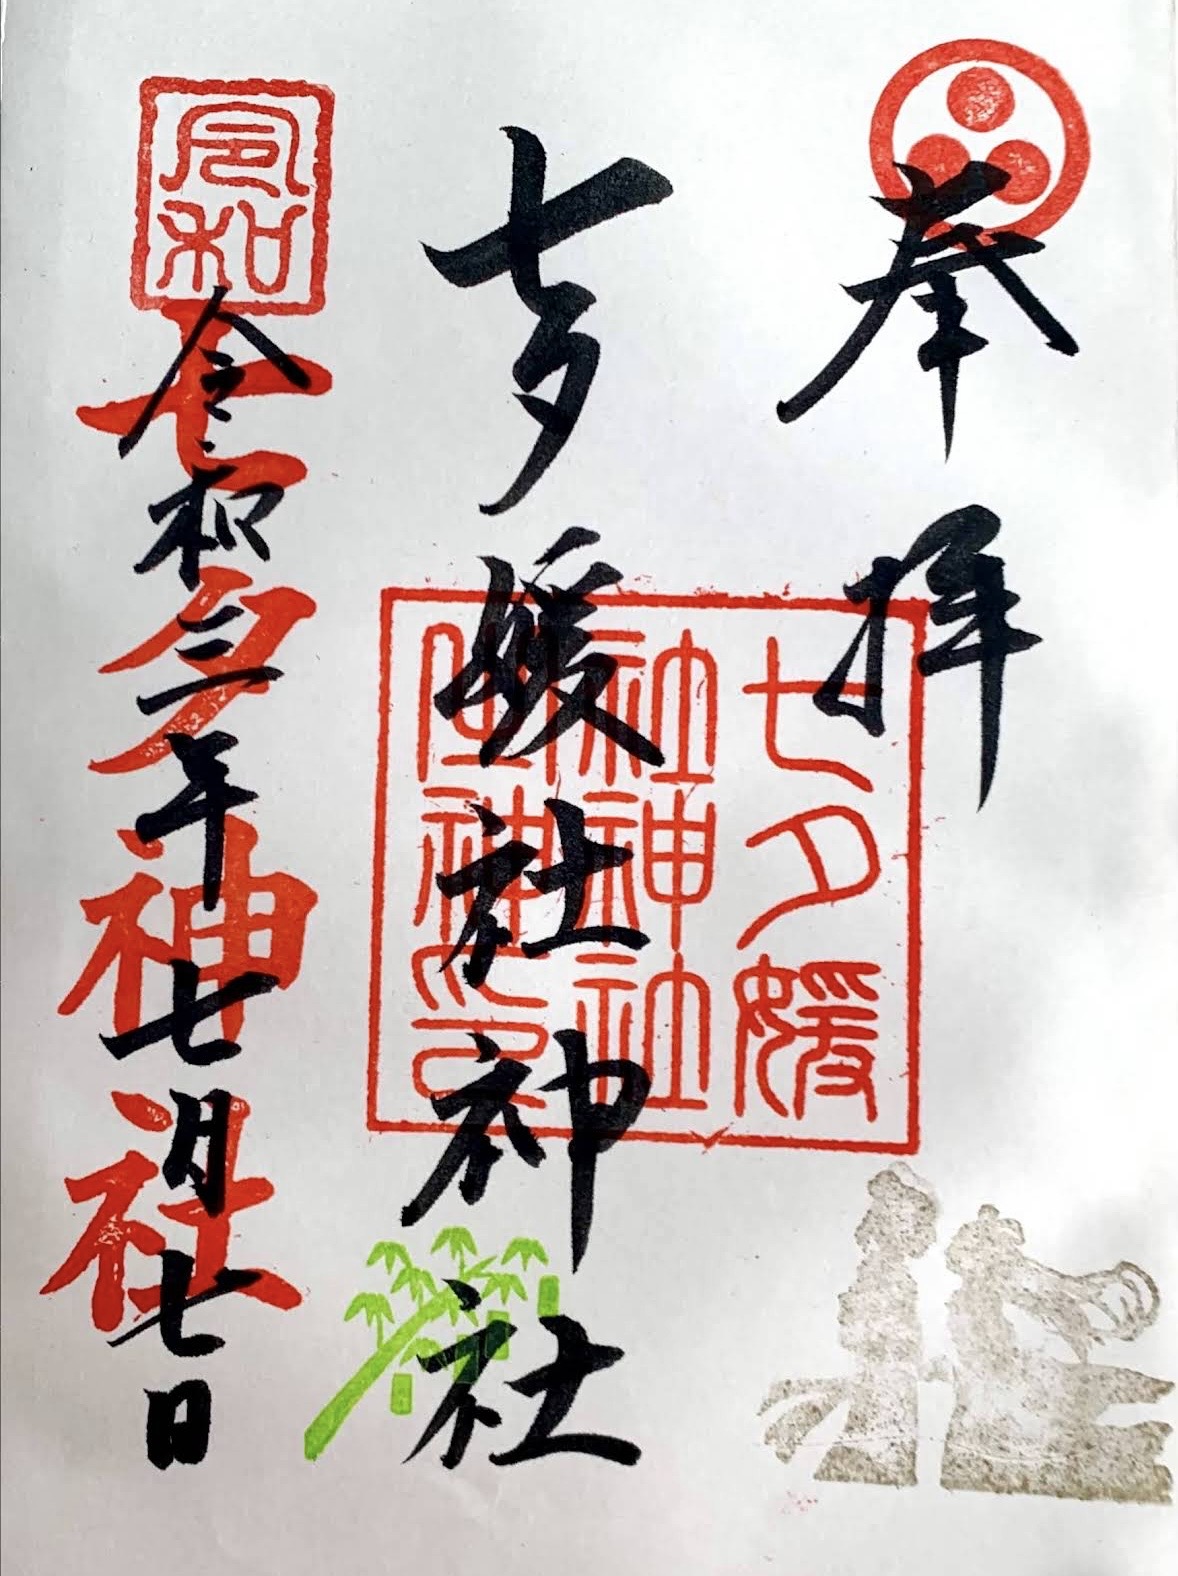 奉拝
七夕媛社神社
七夕媛
社神社
令和
七夕神社
令和三年七月七日